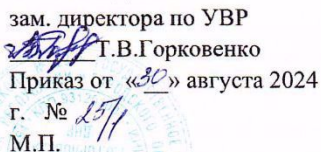 зам. директора по УВР
Т.В.Горковенко
Приказ от «30» августа 2024
г. № 25/1
М.П.